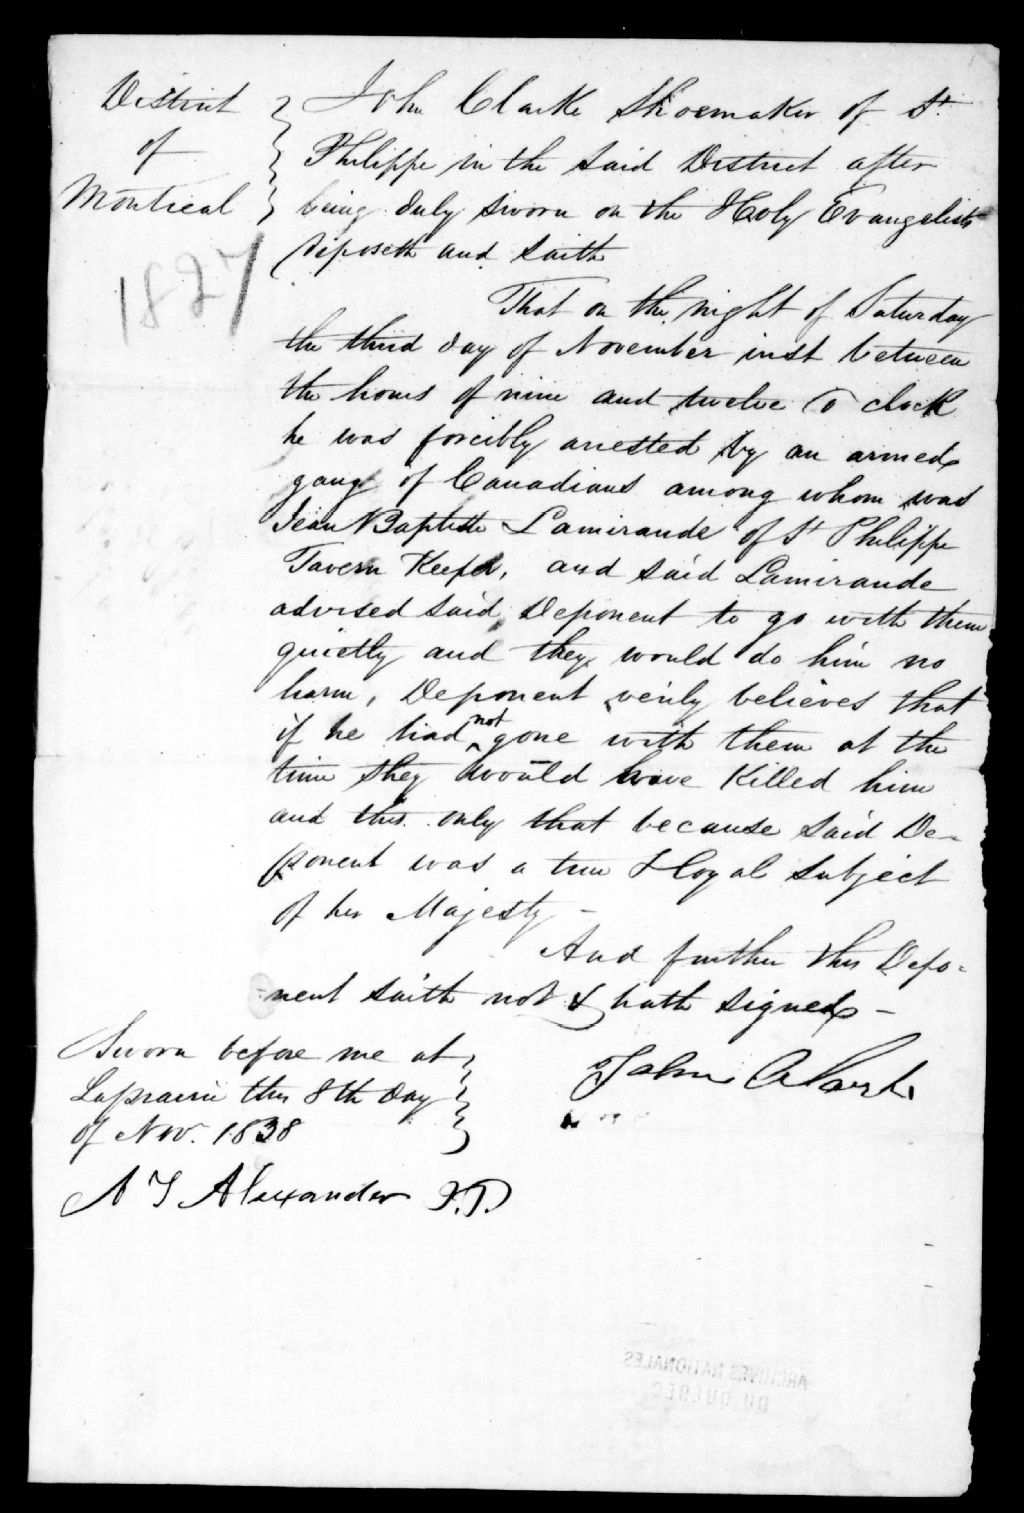 District
of
Montreal
1827
John Clarke Shoemaker of St.
Philippe in the said District after
being duly sworn on the Holy Evangelists
deposeth and saith
That on the night of Saturday
the third day of November inst between
the hours of nine and twelve O clock
he was forcibly arrested by an armed
gang of Canadians among whom was
Jean Baptiste Lamirande of St Philippe
Tavern Keeper, and said Lamirande
advised said Deponent to go with them
quietly and they would do him no
harm, Deponent verily believes that
if he had not gone with them at the
time they would have Killed him
and this only that because said De-
ponent was a true & loyal subject
of her Majesty -
And further this Depo-
nent saith not & hath signed -
Sworn before me at
Laprairie this 8th day
of Nov. 1838
John Clark
A Alexander J.P.
ARCHIVES NATIONALES
DU QUEBEC